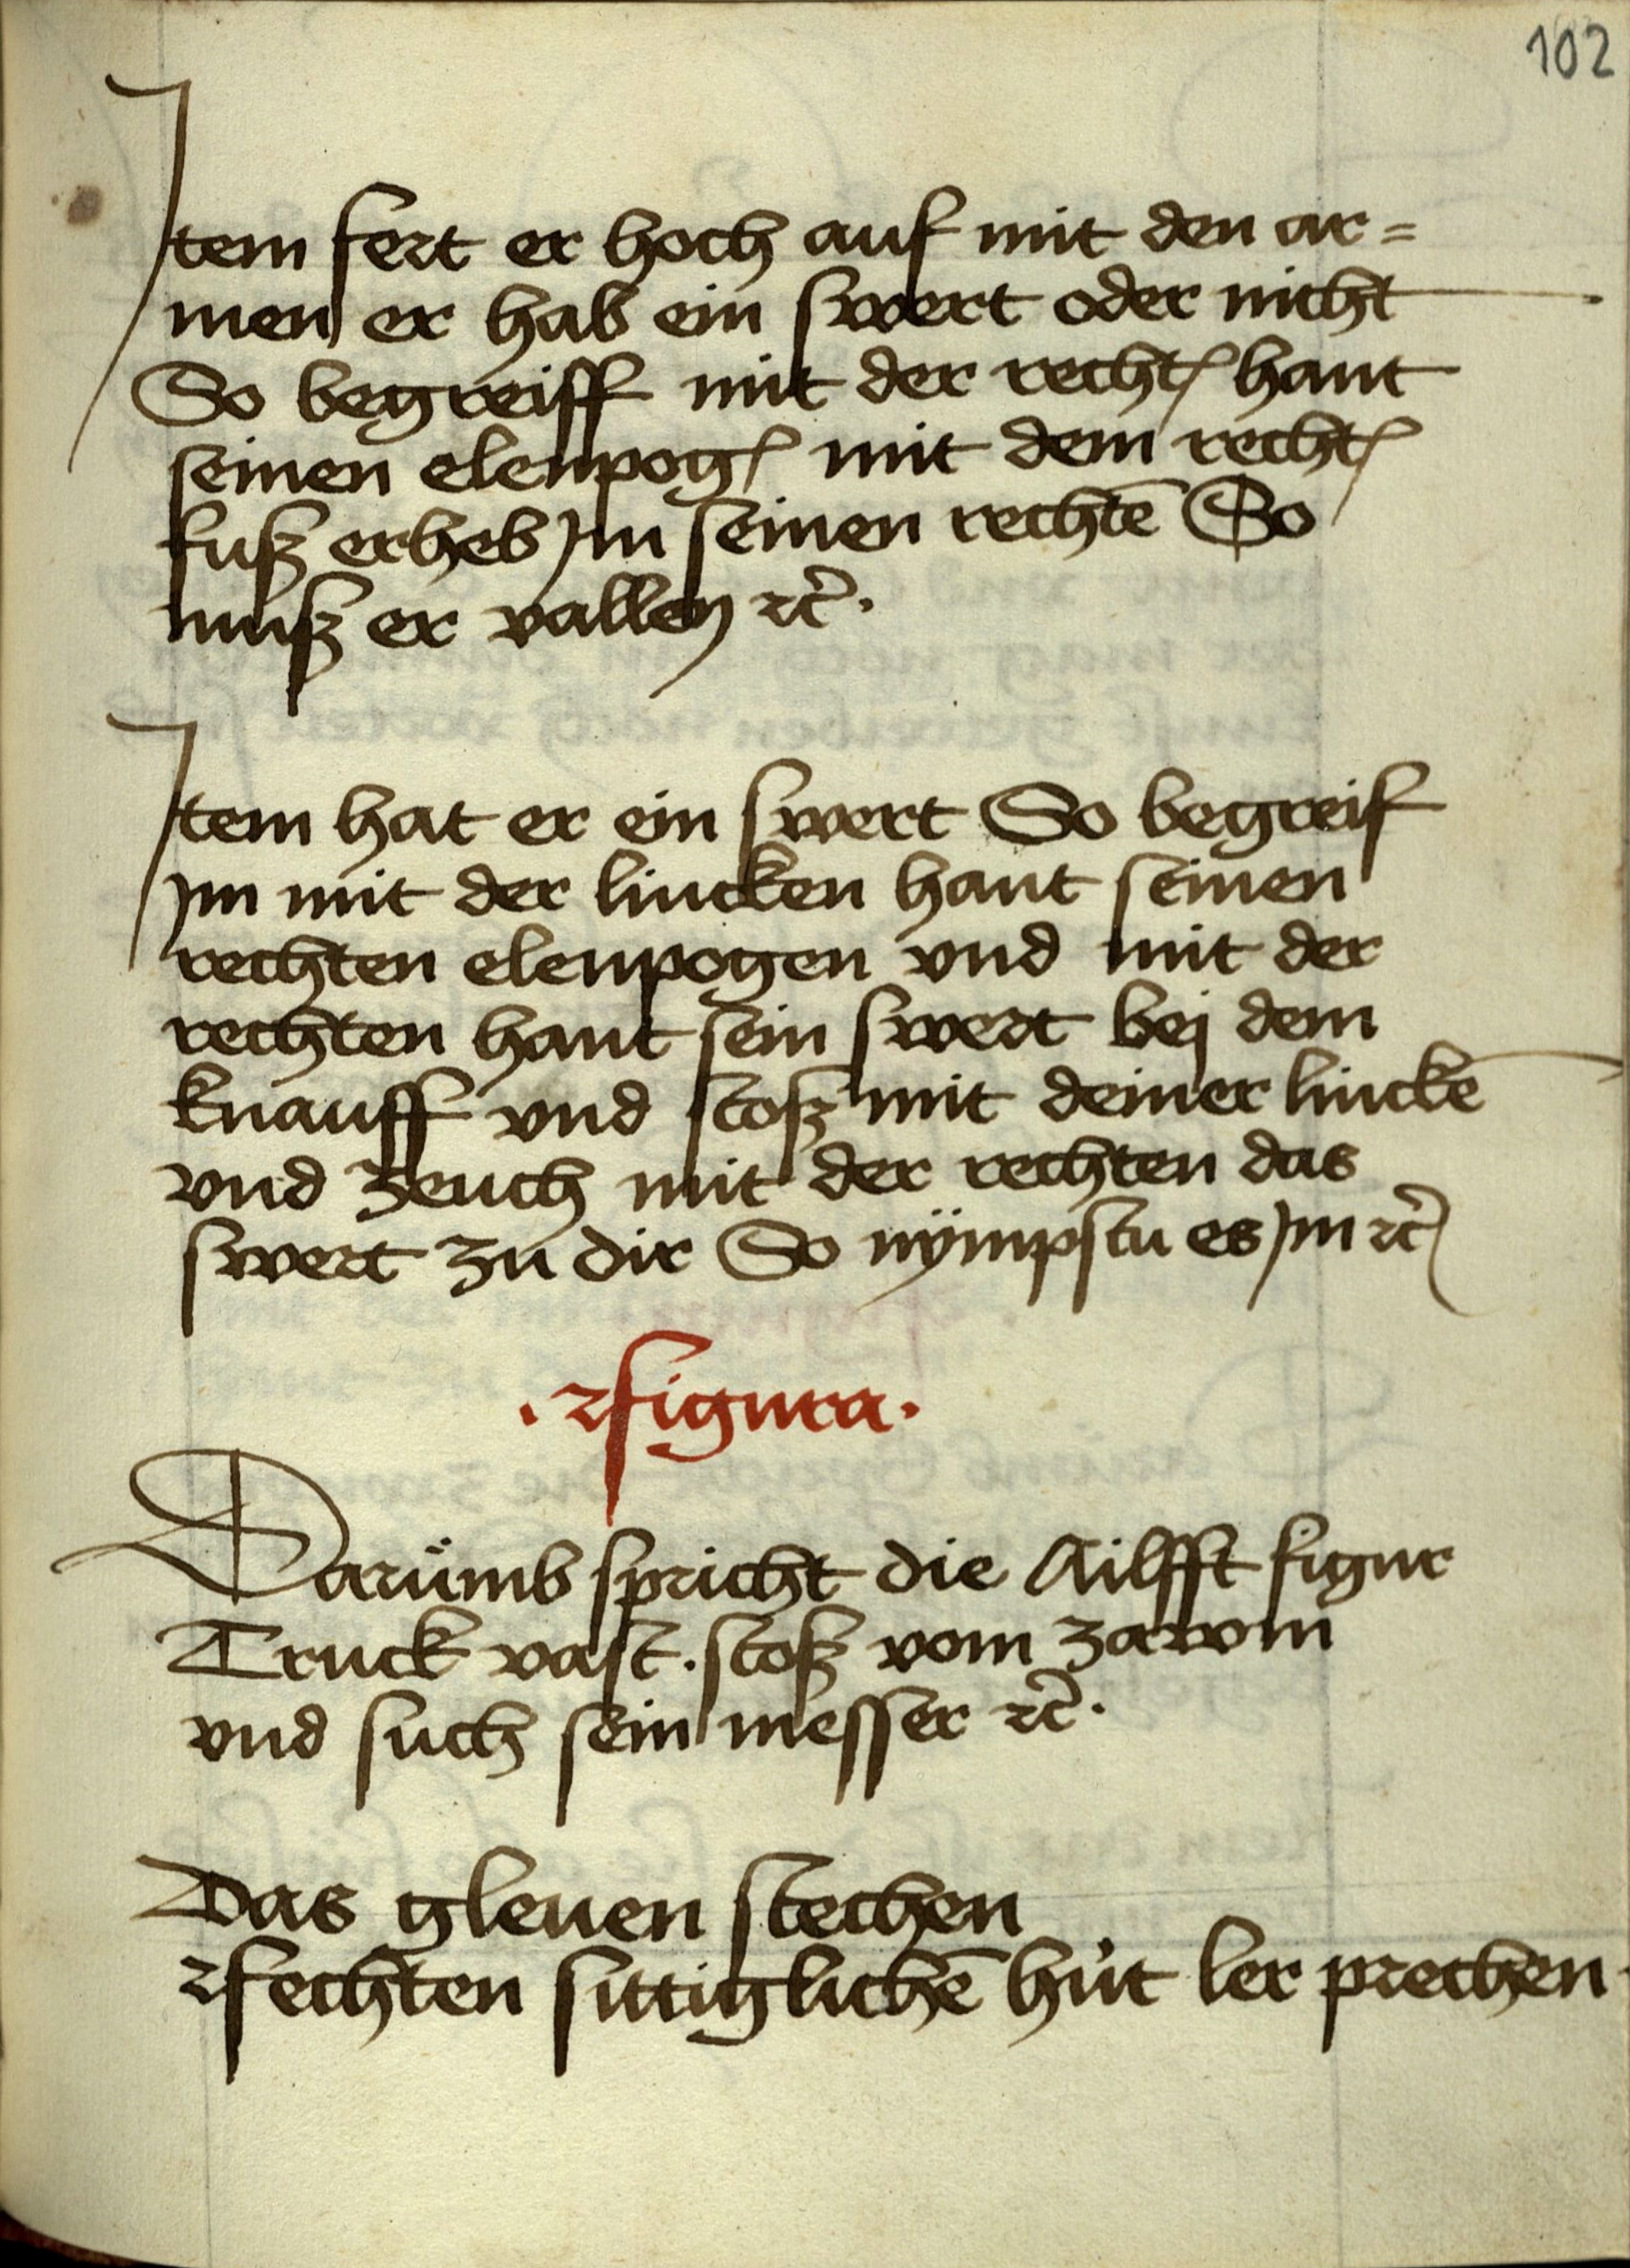 102
Item fert er hoch auf mit den ar=
men er hab ein swert oder nicht
So begreiff mit der rechtñ hant
seinen elenpogñ mit dem rechtñ
fusz erheb Jm seinen rechtē So
musz er vallen ꝛc̃.
Item hat er ein swert So begreif
Jm mit der lincken hant seinen
rechten elenpogen vnd mit der
rechten hant sein swert bej dem
knauff vnd stosz mit deiner linckē
vnd zeuch mit der rechten das
swert zu dir So nÿmpstu es Jm ꝛc̃
. Figura.
Darümb spricht die Ailfft figur
Truck vast. stosz vom zawm
vnd such sein messer ꝛc̃.
Das gleuen stechen
Fechten sittiglichē hu̇t ler prechen.